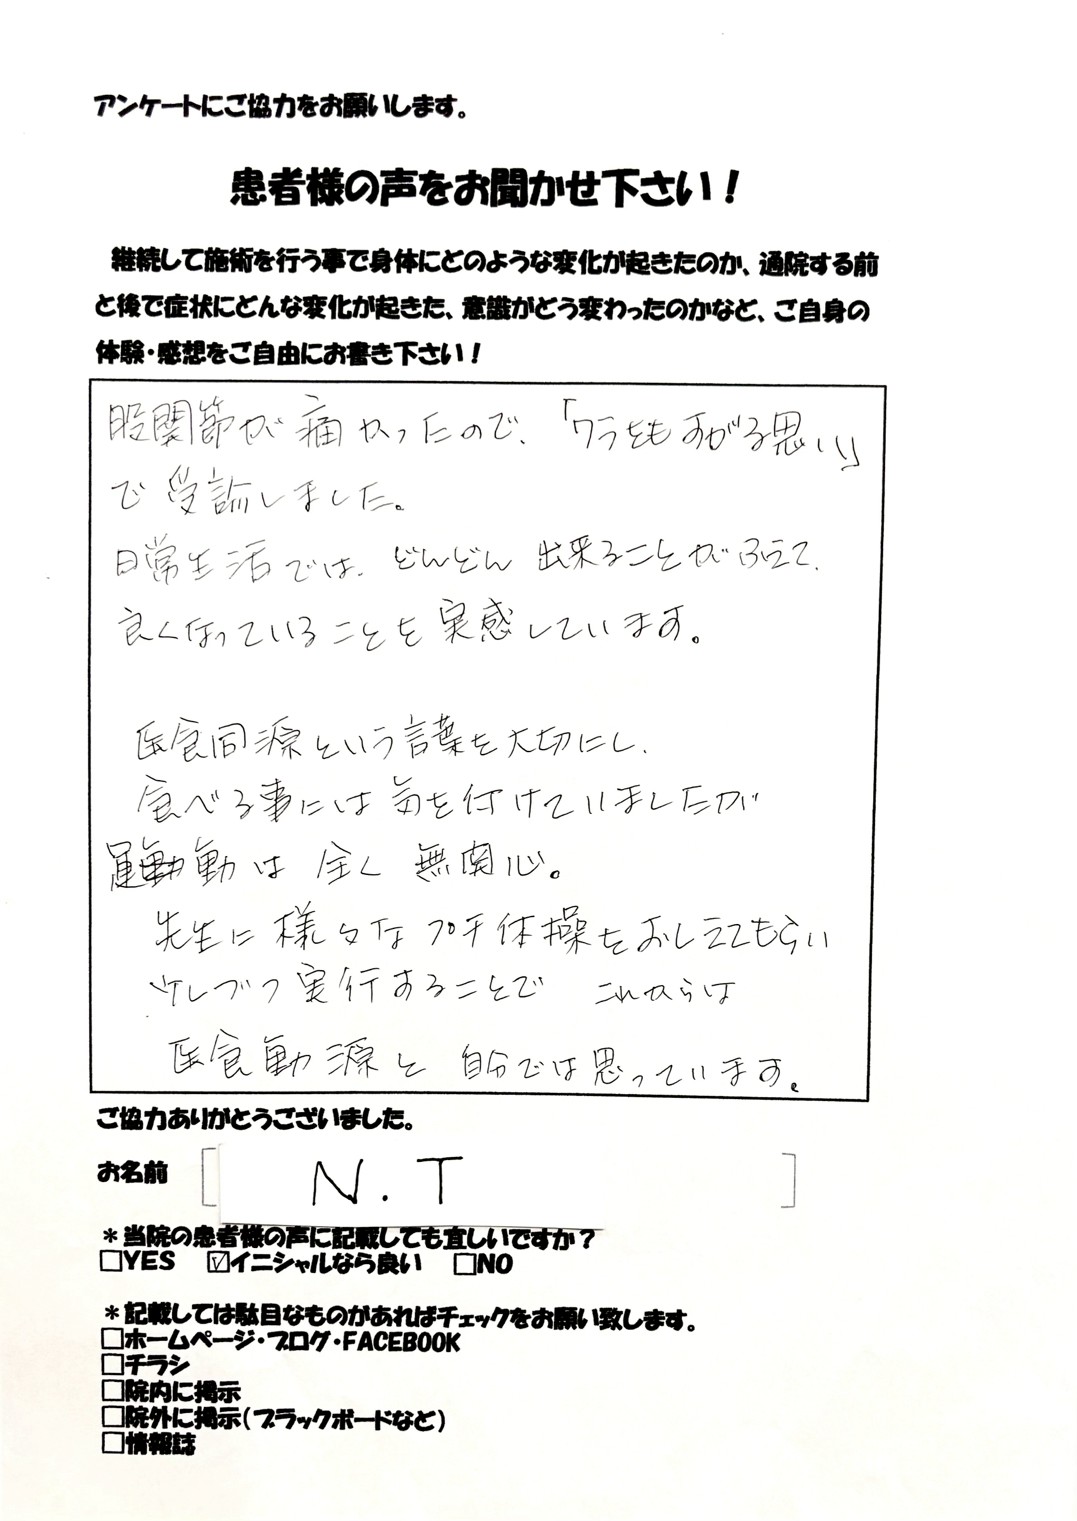 アンケートにご協力をお願いします。
患者様の声をお聞かせ下さい！
継続して施術を行う事で身体にどのような変化が起きたのか、通院する前
と後で症状にどんな変化が起きた、意識がどう変わったのかなど、ご自身の
体験・感想をご自由にお書き下さい！
股関節が痛かったので、「ワラをもすがる思い」
で受論しました。
日常生活では、どんどん出来ることがふえて、
良くなっていることを実感しています。
医食同源という言葉を大切にし、
食べる事には気を付けていましたが
運動は全く無関心。
先生に様々なプチ体操をおしえてもらい
少しづつ実行することで これからは
医食動源と自分では思っています。
ご協力ありがとうございました。
お名前 [ N.T ]
＊当院の患者様の声に記載しても宜しいですか？
□YES ☑イニシャルなら良い □NO
＊記載しては駄目なものがあればチェックをお願い致します。
□ホームページ・ブログ・FACEBOOK
□チラシ
□院内に掲示
□院外に掲示（ブラックボードなど）
□情報誌